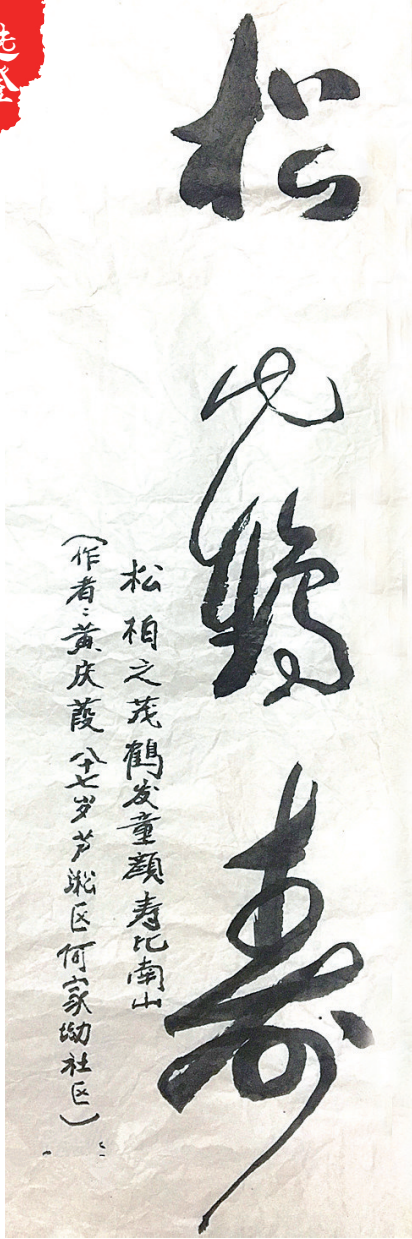 松鹤寿
松柏之茂鹤发童颜寿比南山
（作者：黄庆葭 八十七岁芦淞区何家坳社区）